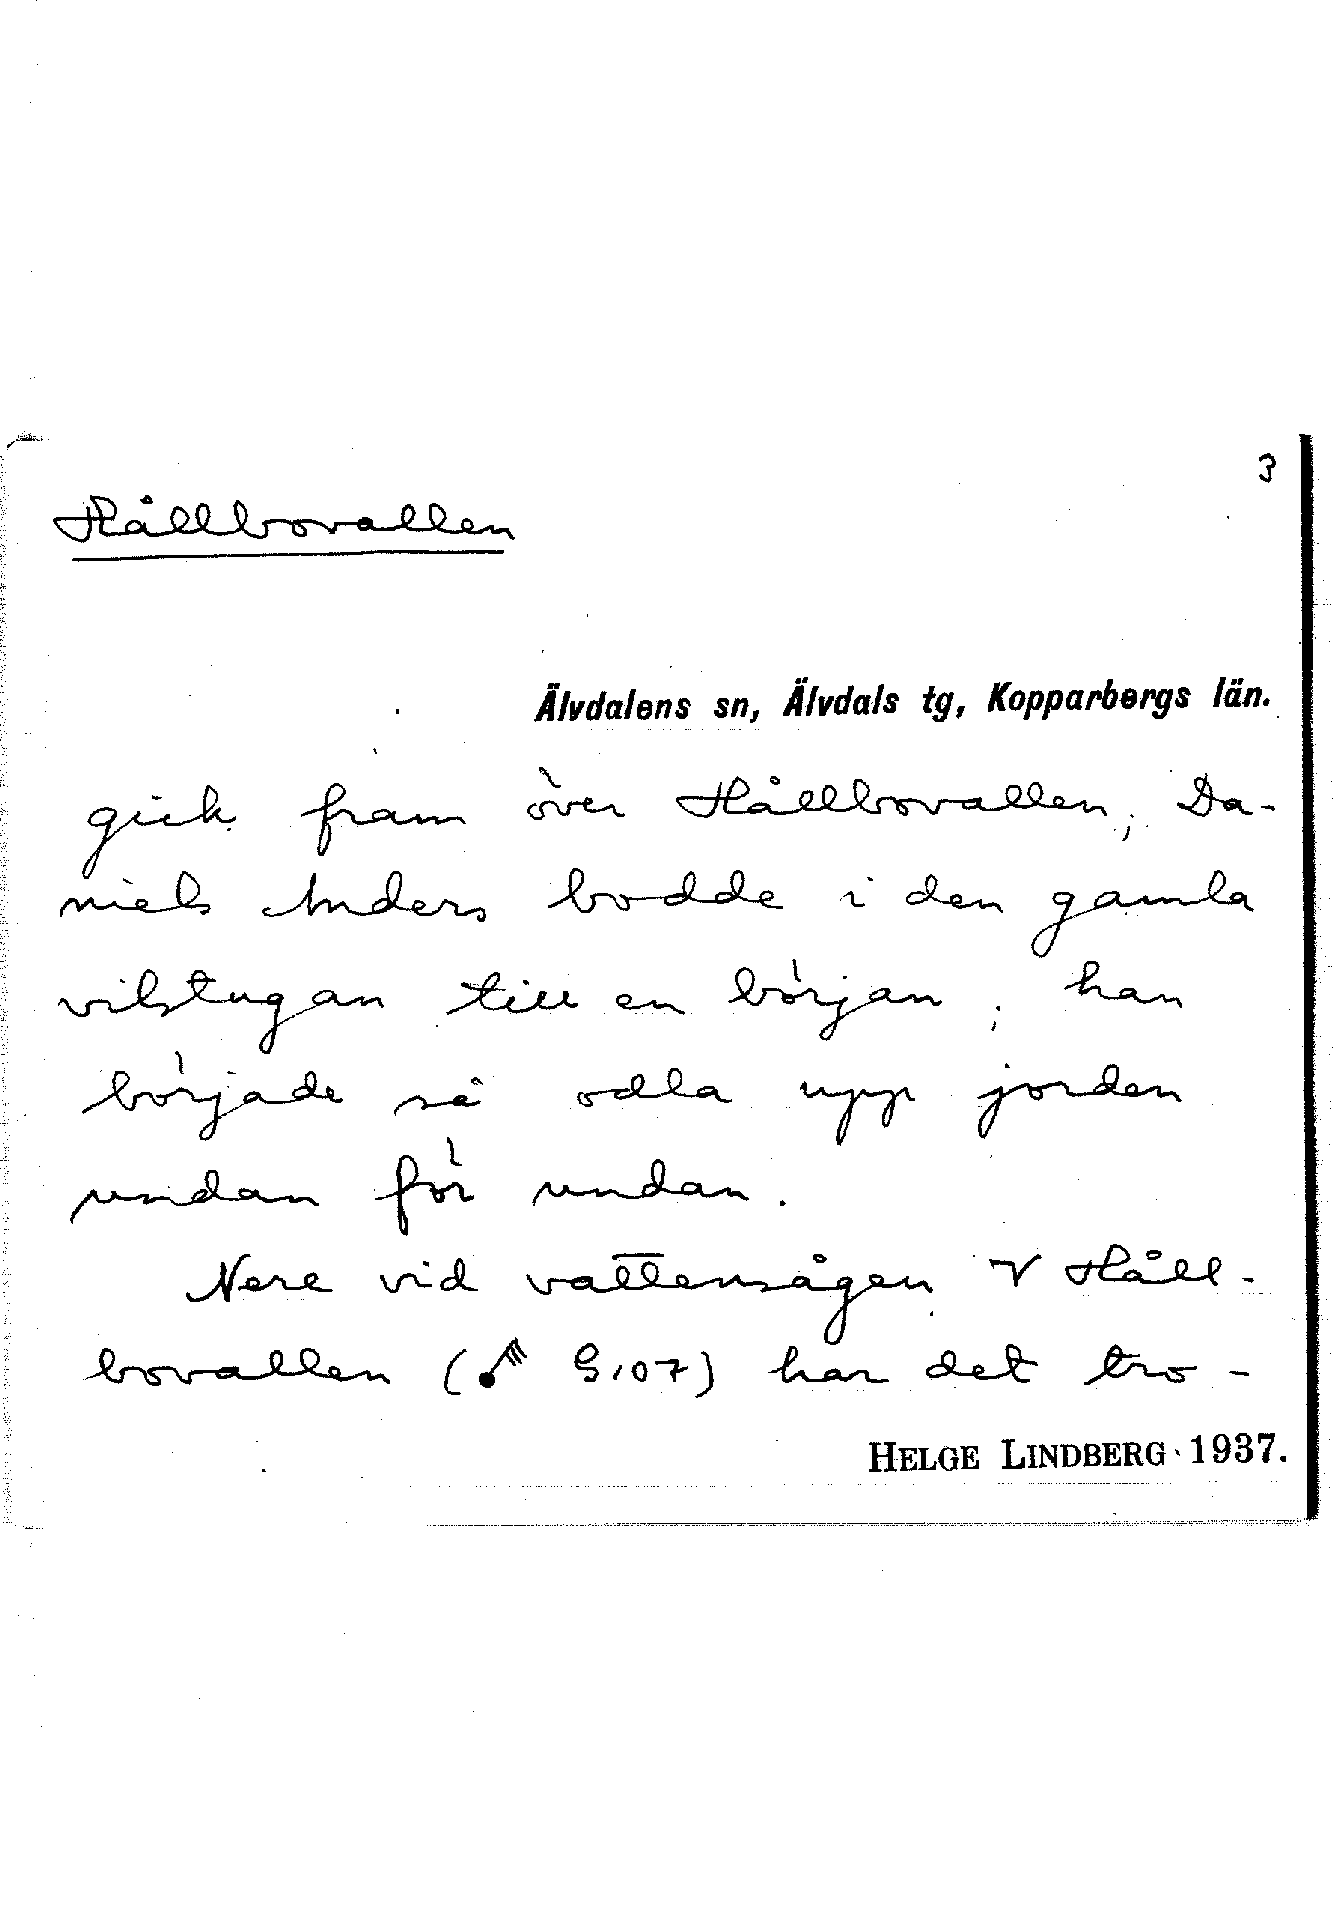 3
Hållbovallen
Älvdalens sn, Älvdals tg, Kopparbergs län.
gick fram över Hållbovallen; Da-
niels Anders bodde i den gamla
vilstugan till en början; han
började så odla upp jorden
undan för undan.
Nere vid vattensågen V Håll-
bovallen ( 9,07) har det tro-
HELGE LINDBERG 1937.